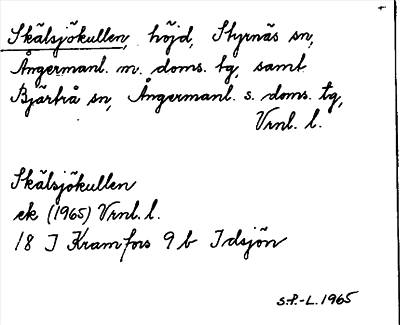 Skälsjökullen, höjd, Styrnäs sn,
Ångermanl. m. doms. tg, samt
Bjärtrå sn, Ångermanl. s. doms. tg,
Vrnl. l.
Skälsjökullen
ek (1965) Vrnl. l.
18 I Kramfors 9 b Idsjön
S.P.-L. 1965